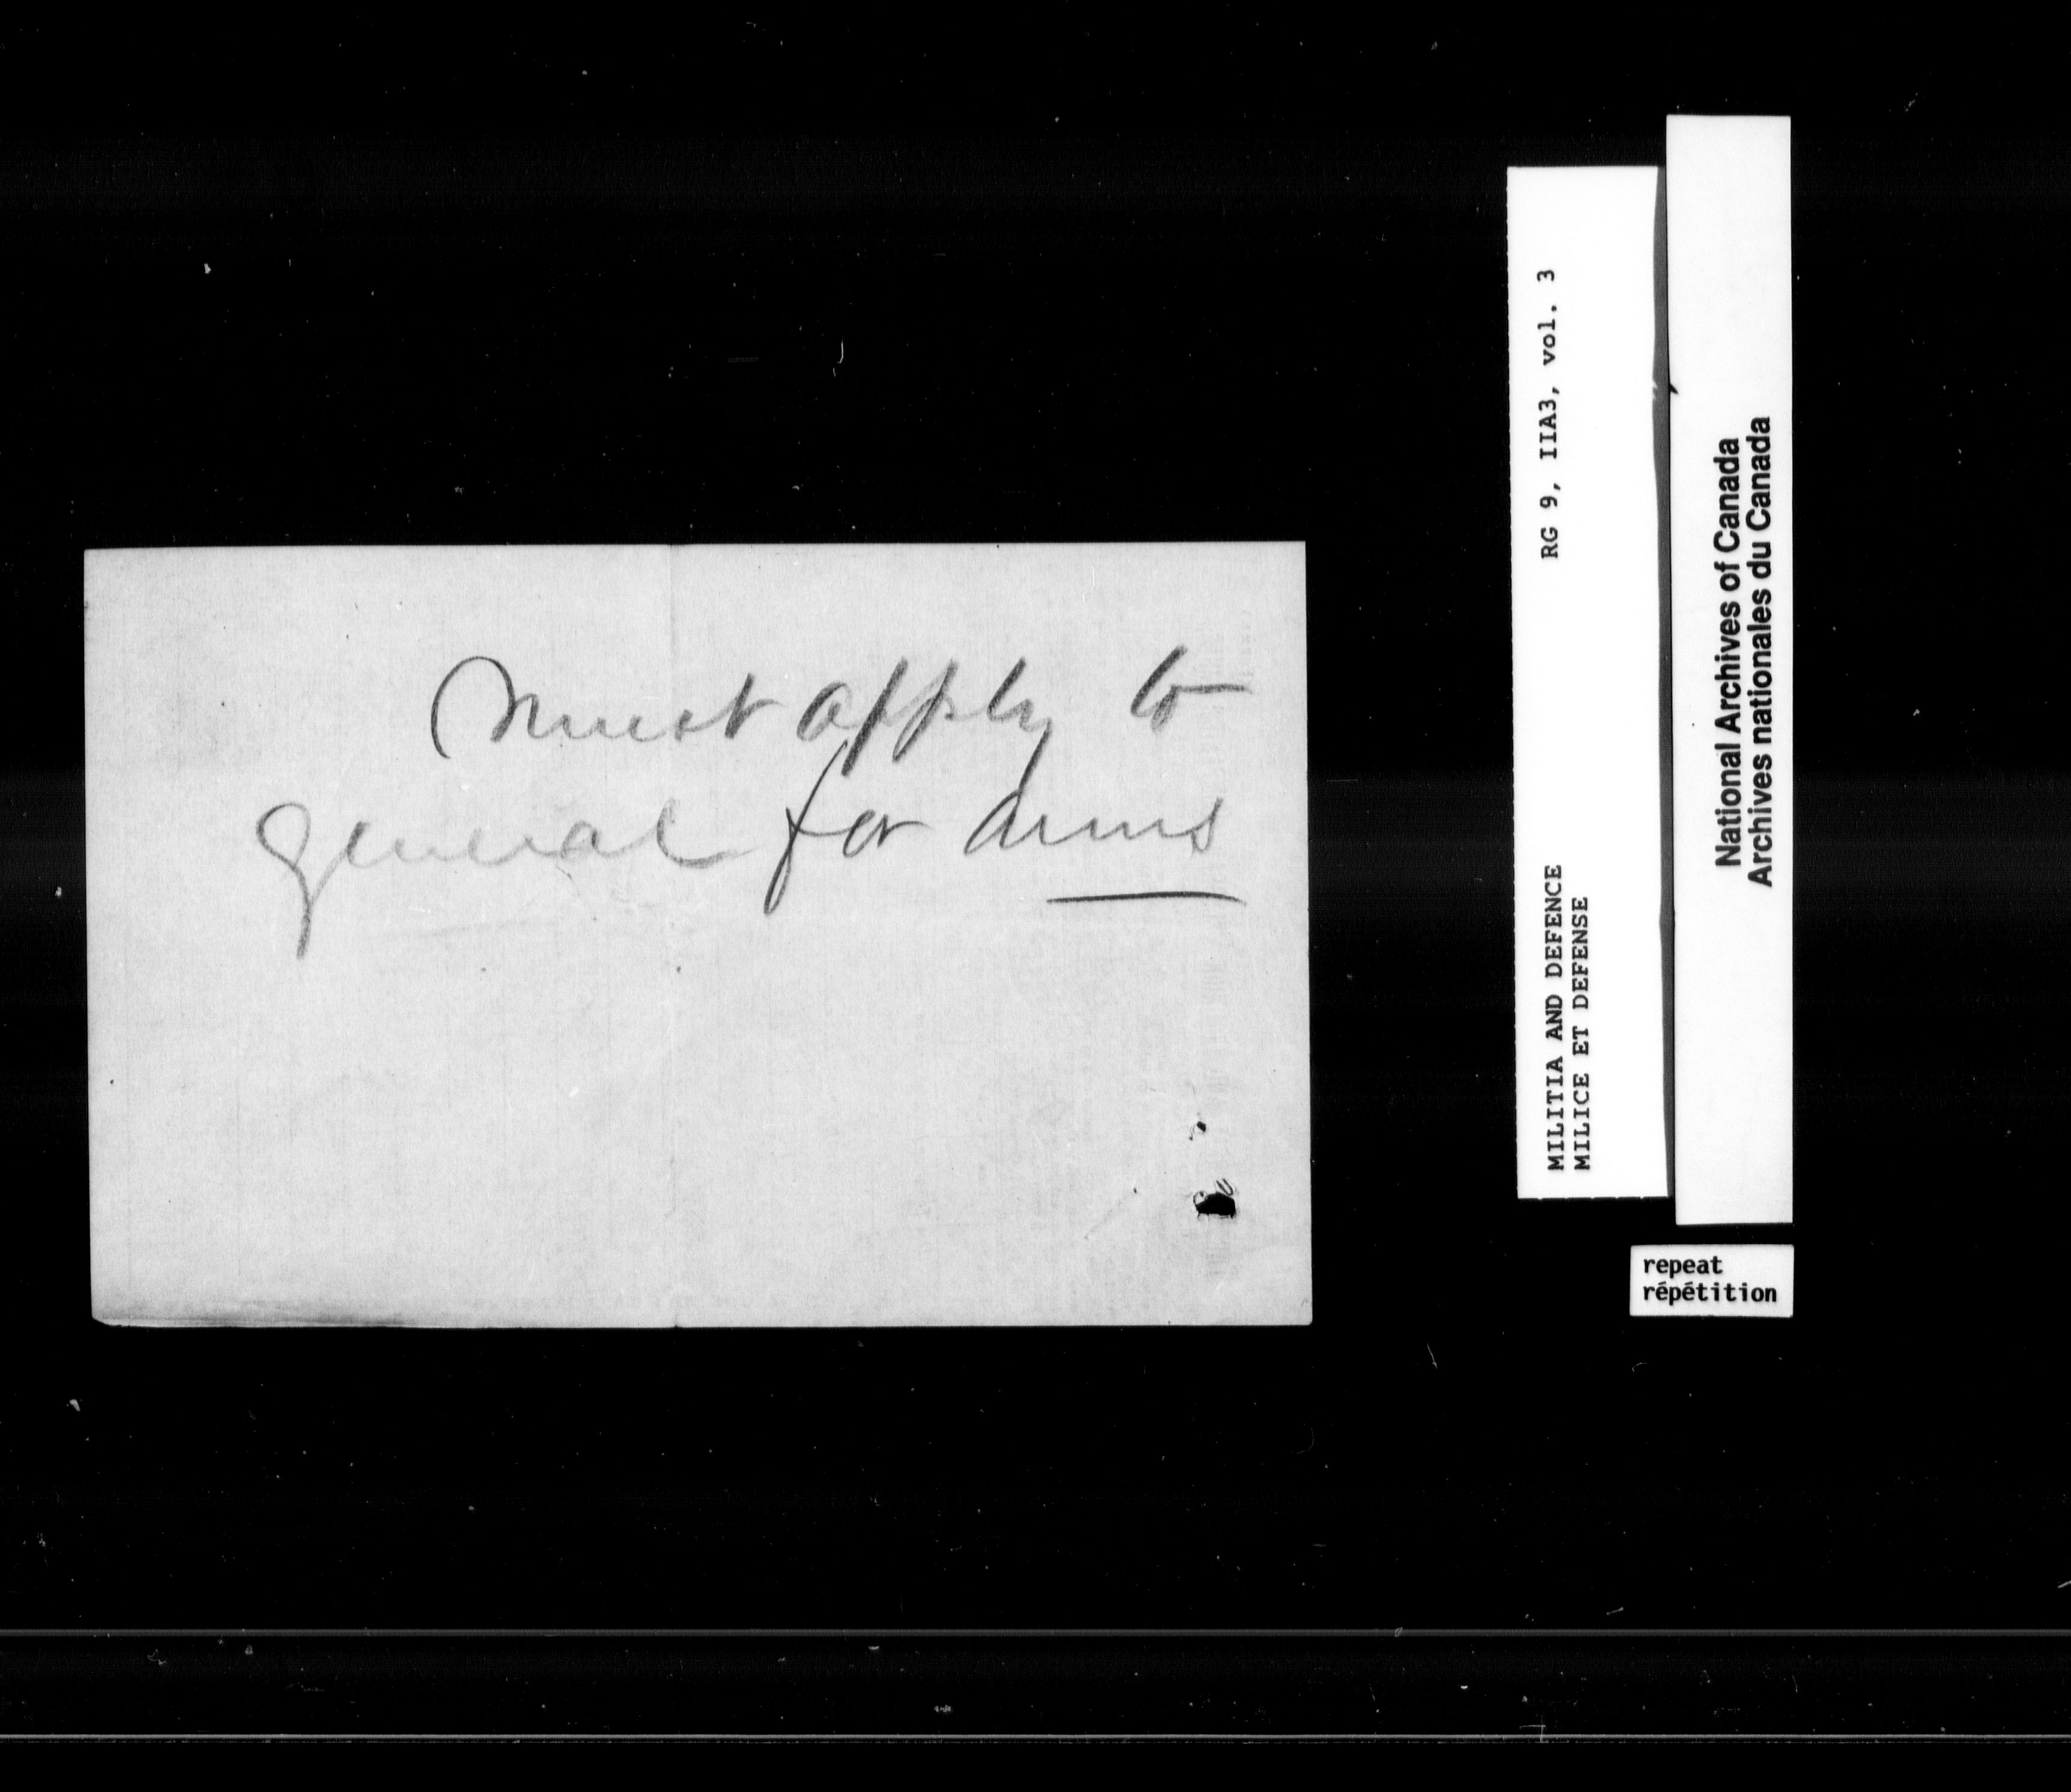 Must apply to
general for Arms
MILITIA AND DEFENCE RG 9, IIA3, vol. 3
MILICE ET DEFENSE
National Archives of Canada
Archives nationales du Canada
repeat
répétition